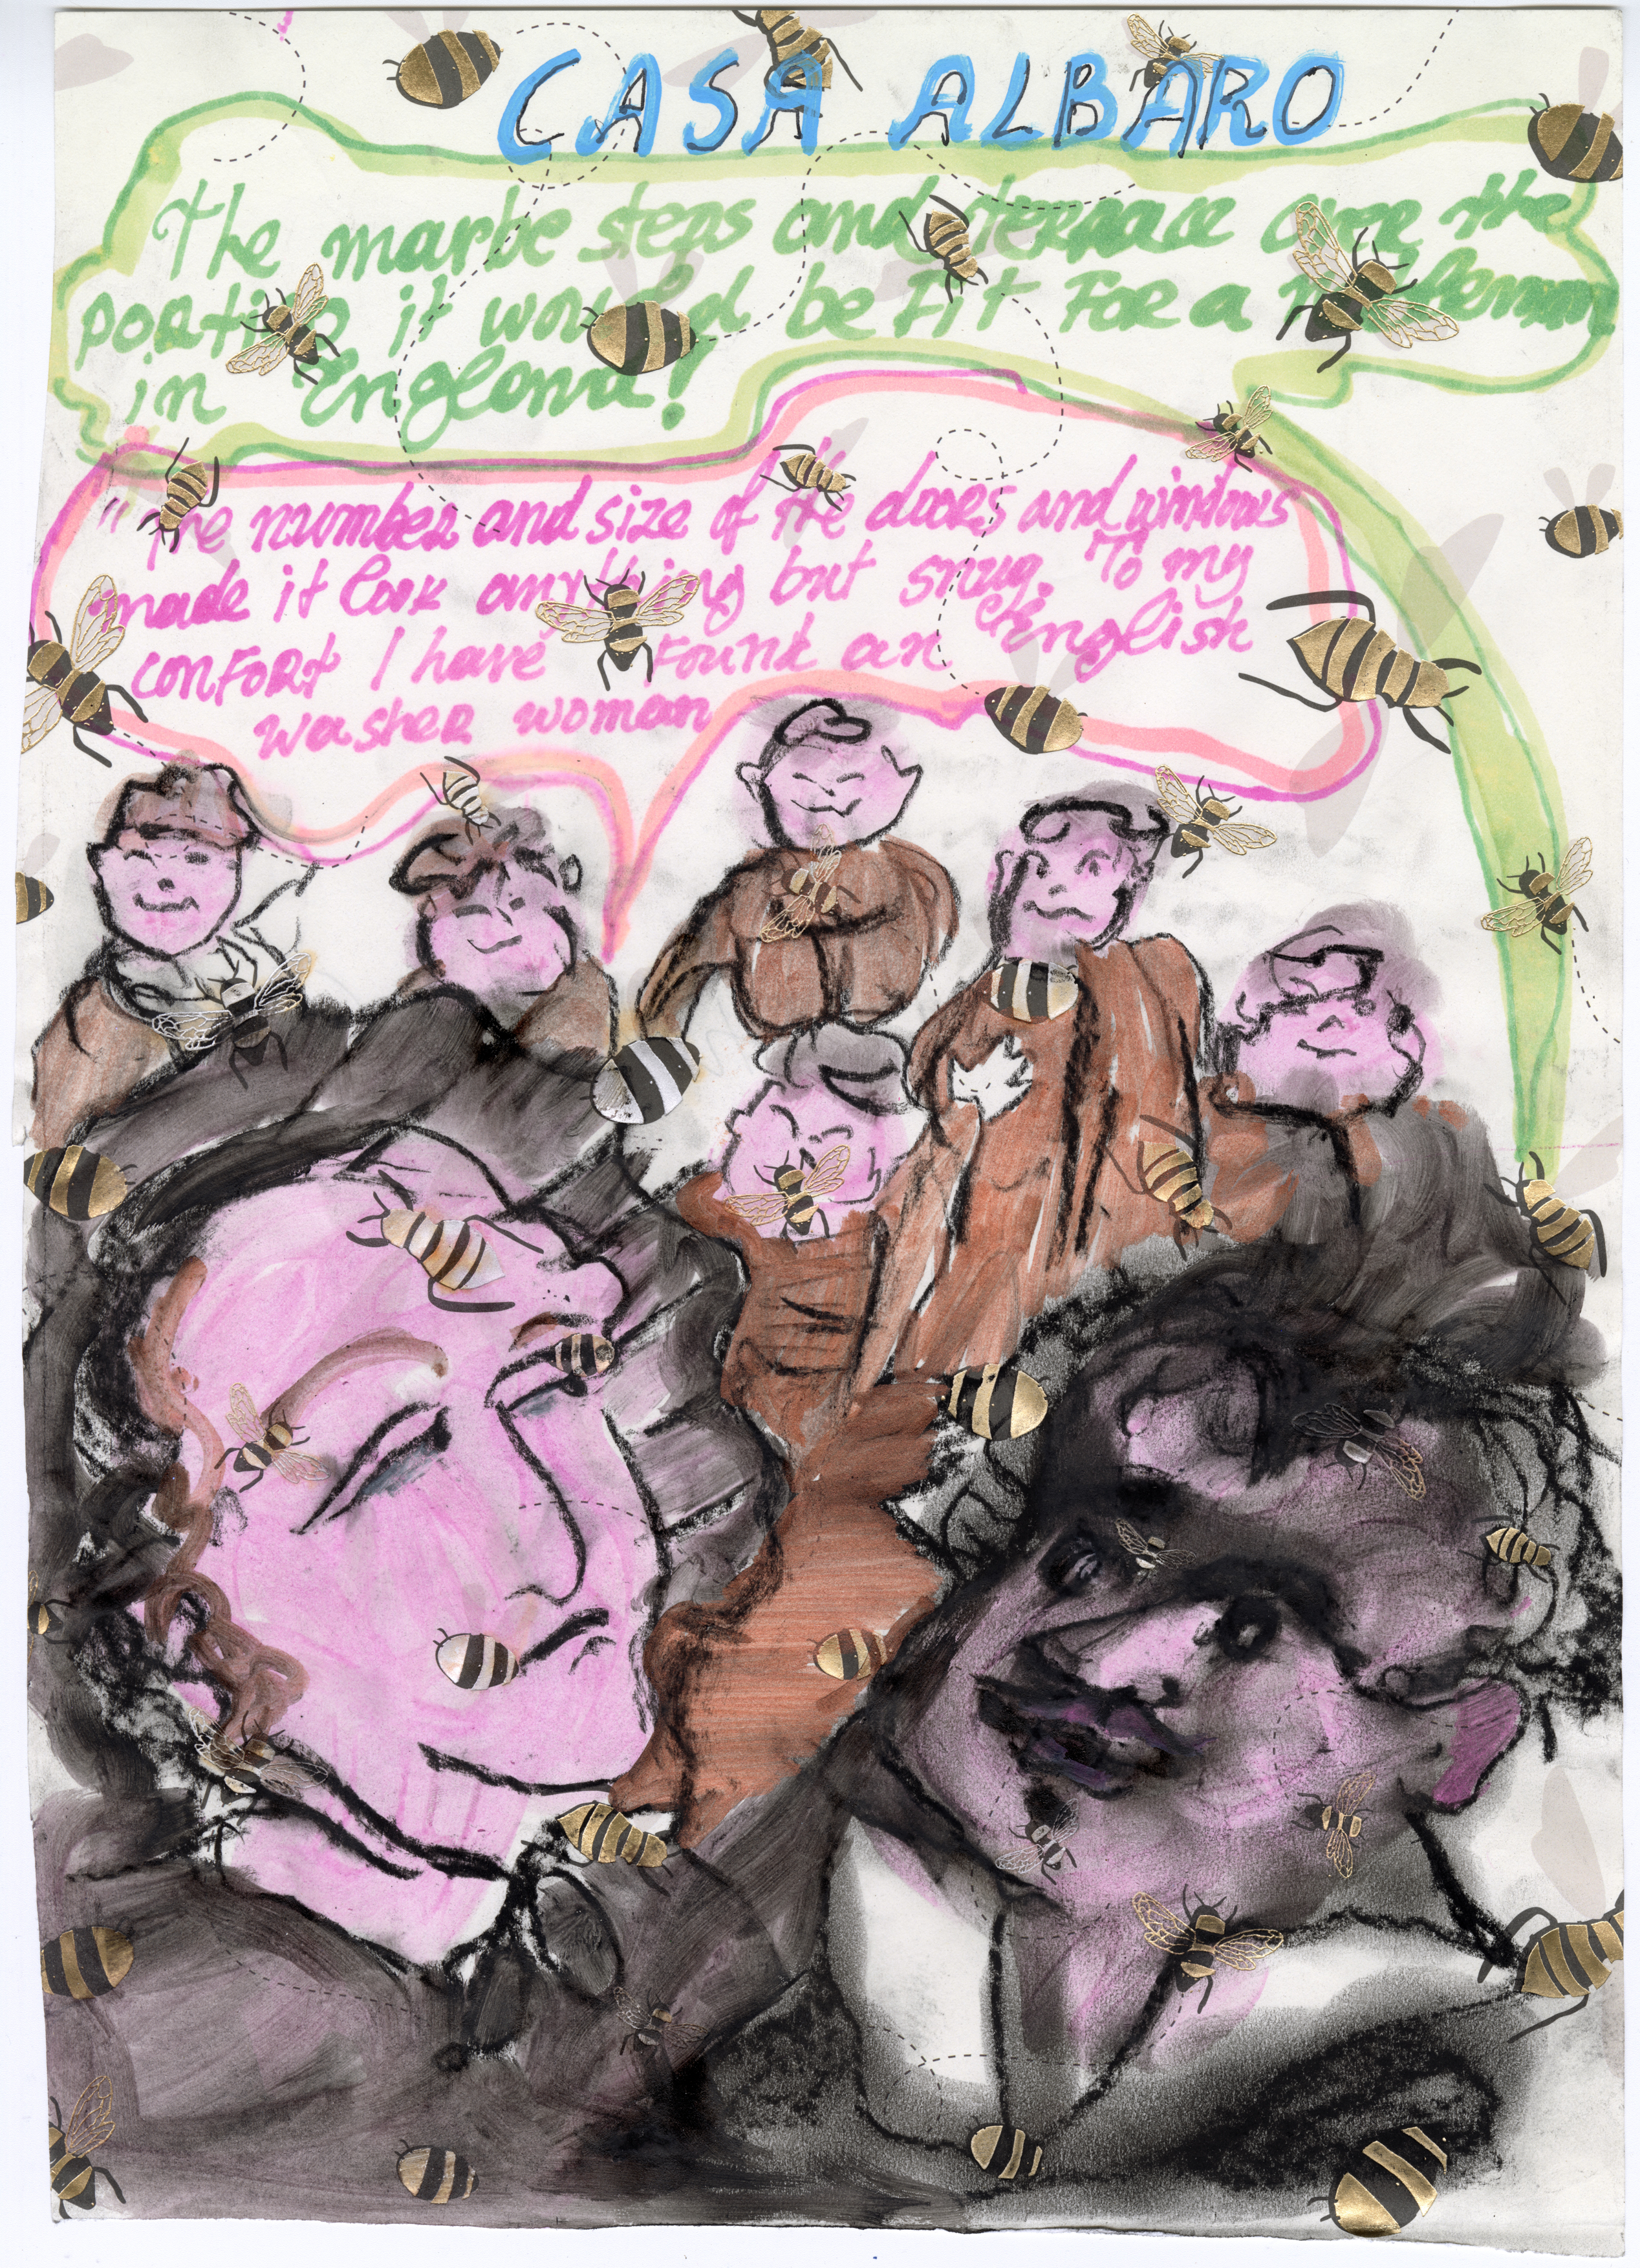 CASA ALBARO
The marbe steps and terrace over the
portico it would be Fit For a Nobleman
in England!
"The number and size of the doors and windows
made it look anything but snug. To my
conFort I have Fount an English
washer woman